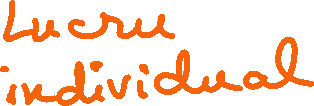 Lucru
individual